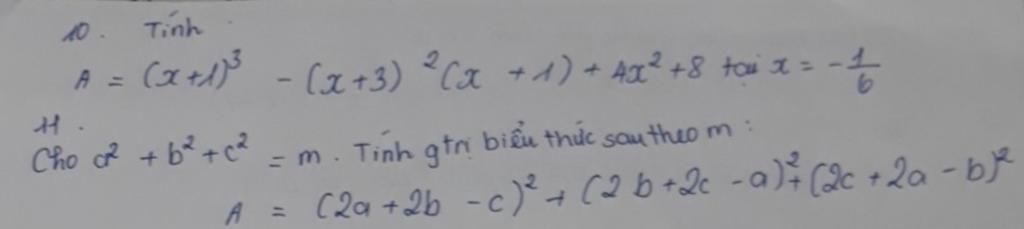 10. Tính
A = (x+1)³ - (x+3)²(x+1) + 4x²+8 tại x = -1/6
11.
Cho a² + b² + c² = m. Tính gtrị biểu thức sau theo m:
A = (2a+2b-c)² + (2b+2c-a)² + (2c+2a-b)²